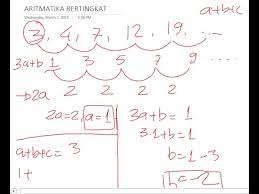 ARITMATIKA BERTINGKAT
Wednesday, March 7, 2018 5:36 PM
a+b+c
3, 4, 7, 12, 19, ...
3a+b 1 3 5 7 ...
→2a 2 2 2
2a=2, a=1
3a+b=1
3.1+b=1
b=1-3
b=-2
a+b+c=3
1+